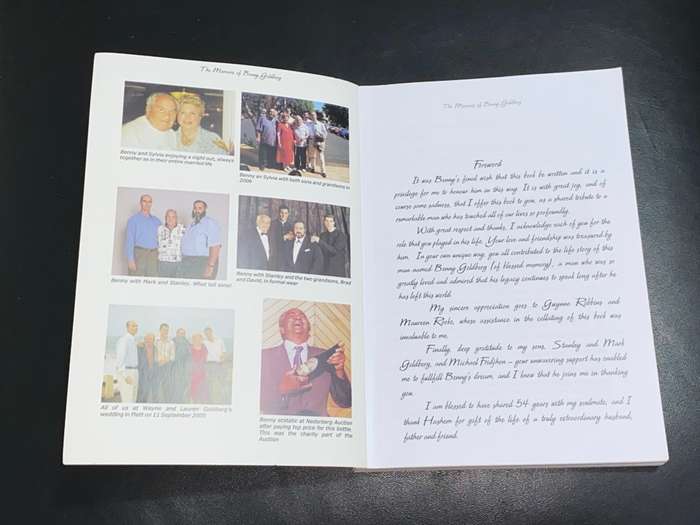 The Memoirs of Benny Goldberg
Benny and Sylvia enjoying a night out, always
together as in their entire married life
Benny an Sylvia with both sons and grandsons in
2006
Benny with Mark and Stanley. What tall sons!
Benny with Stanley and the two grandsons, Brad
and David, in formal wear
All of us at Wayne and Lauren Goldberg's
wedding in Plett on 11 September 2005
Benny ecstatic at Nederberg Auction
after paying top price for this bottle.
This was the charity part of the
Auction
The Memoirs of Benny Goldberg
Foreword
It was Benny's final wish that this book be written and it is a
privilege for me to honour him in this way. It is with great joy, and of
course some sadness, that I offer this book to you, as a shared tribute to a
remarkable man who has touched all of our lives so profoundly.
With great respect and thanks, I acknowledge each of you for the
role that you played in his life. Your love and friendship was treasured by
him. In your own unique way, you all contributed to the life story of this
man named Benny Goldberg (of blessed memory), a man who was so
greatly loved and admired that his legacy continues to speak long after he
has left this world.
My sincere appreciation goes to Gwynne Robbins and
Maureen, whose assistance in the collating of this book was
invaluable to me.
Finally, deep gratitude to my sons, Stanley and Mark
Goldberg, and Michael – your unwavering support has enabled
me to fullfill Benny's dream, and I know that he joins me in thanking
you.
I am blessed to have shared 54 years with my soulmate, and I
thank Hashem for gift of the life of a truly extraordinary husband,
father and friend.